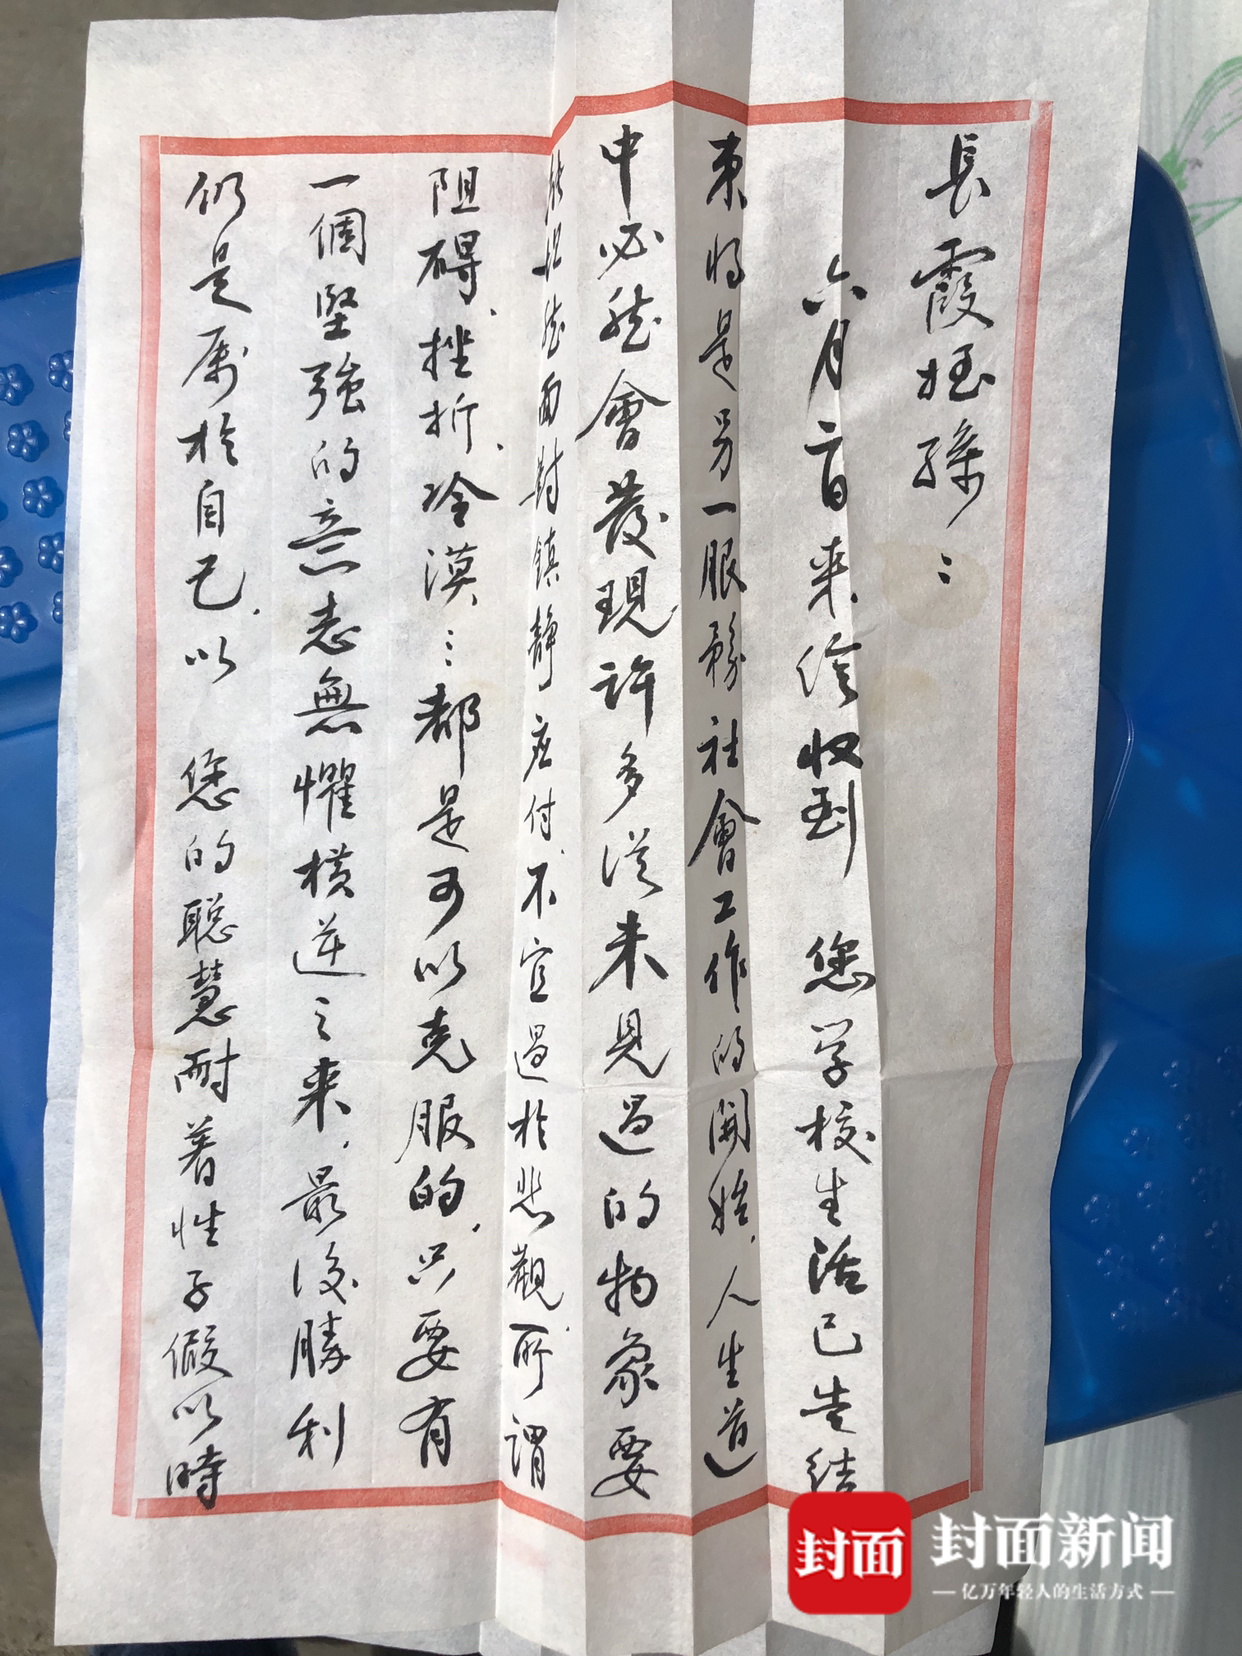 長霞姪孫：
六月一日来信收到 您学校生活已告结
束将是另一服務社會工作的開始，人生道
中必然會發現许多從未見過的物象要
坦然面對鎮静应付，不宜過於悲觀，所謂
阻碍、挫折、冷漠……都是可以克服的，只要有
一個堅強的意志無懼横逆之来，最後勝利
仍是属於自己，以 您的聪慧耐着性子假以時
封面
封面新闻
亿万年轻人的生活方式